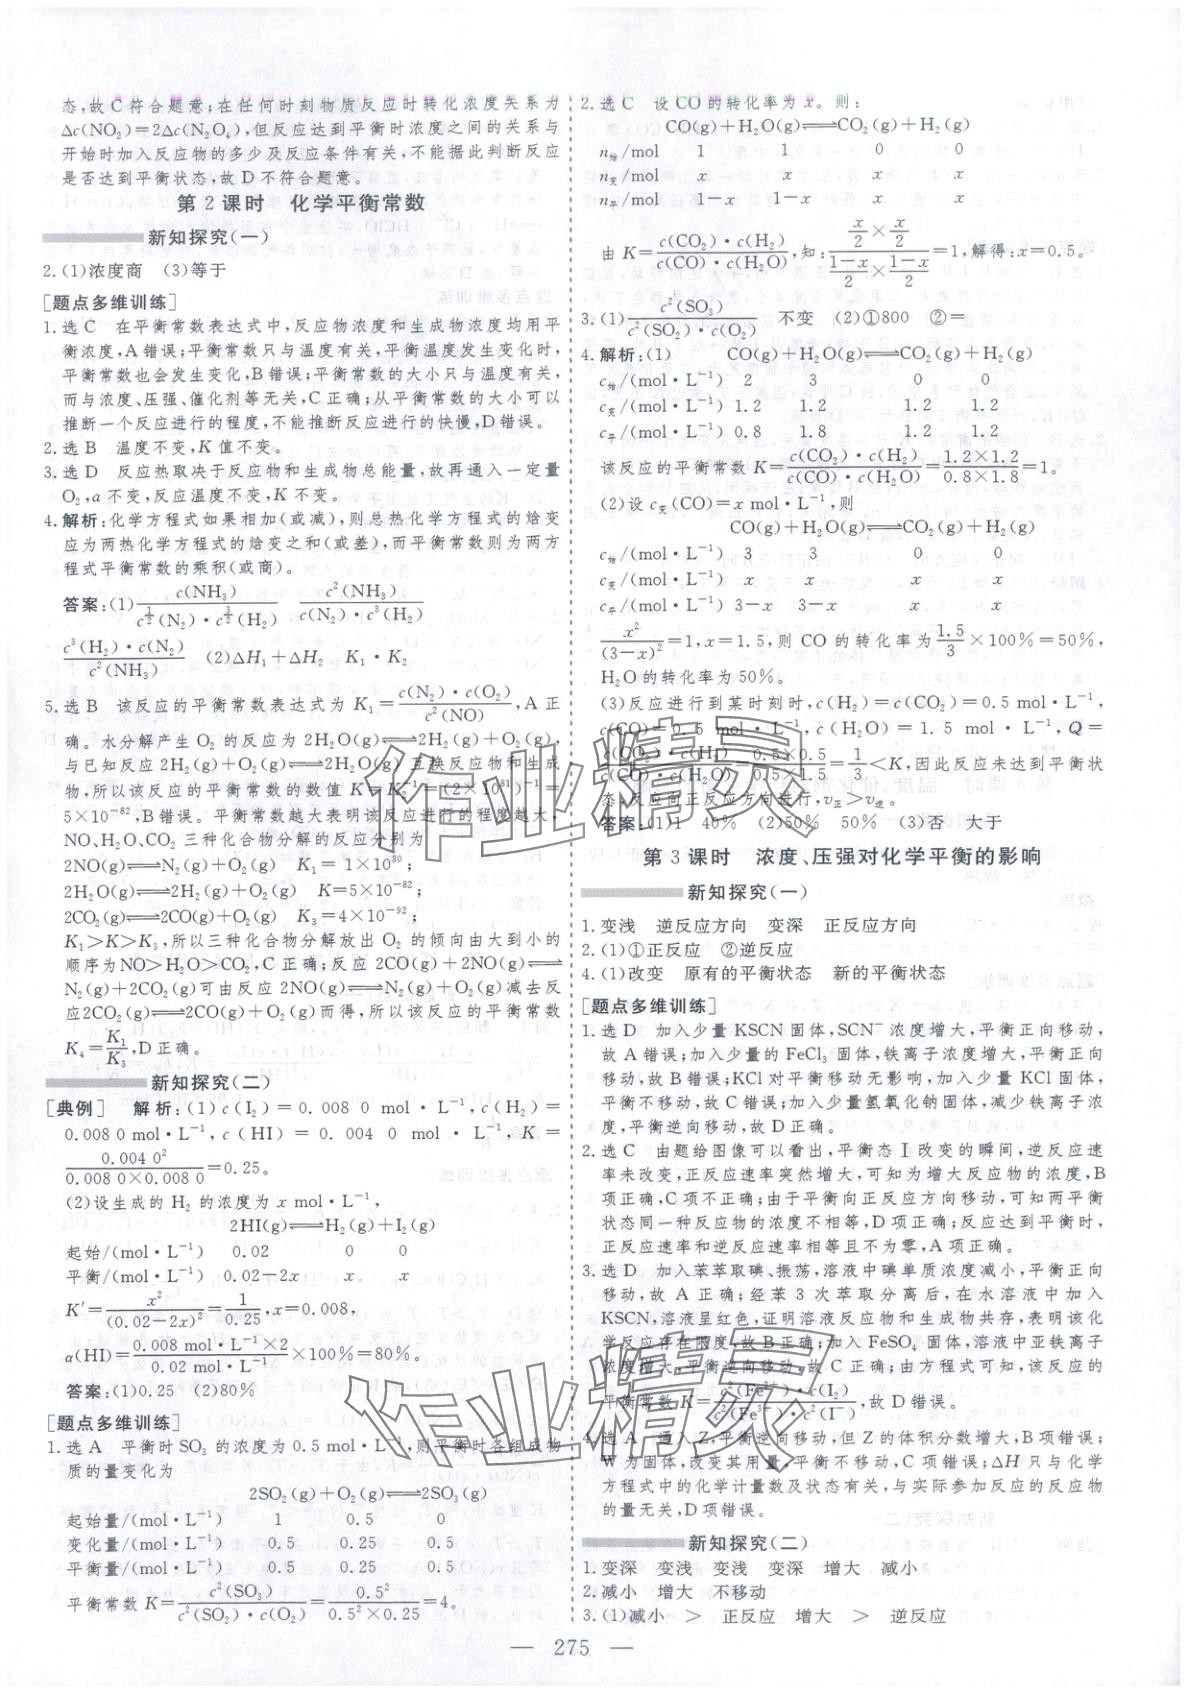 态,故C符合题意;在任何时刻物质反应时转化浓度关系为
Δc(NO₂)=2Δc(N₂O₄),但反应达到平衡时浓度之间的关系与
开始时加入反应物的多少及反应条件有关,不能据此判断反应
是否达到平衡状态,故D不符合题意。
第2课时 化学平衡常数
新知探究(一)
2.(1)浓度商 (3)等于
[题点多维训练]
1.选C 在平衡常数表达式中,反应物浓度和生成物浓度均用平
衡浓度,A错误;平衡常数只与温度有关,平衡温度发生变化时,
平衡常数也会发生变化,B错误;平衡常数的大小只与温度有关,
而与浓度、压强、催化剂等无关,C正确;从平衡常数的大小可以
推断一个反应进行的程度,不能推断反应进行的快慢,D错误。
2.选B 温度不变,K值不变。
3.选D 反应热取决于反应物和生成物总能量,故再通入一定量
O₂,a不变,反应温度不变,K不变。
4.解析:化学方程式如果相加(或减),则总热化学方程式的焓变
应为两热化学方程式的焓变之和(或差),而平衡常数则为两方
程式平衡常数的乘积(或商)。
答案:(1) c(NH₃)/(c^(1/2)(N₂)·c^(3/2)(H₂)) c²(NH₃)/(c(N₂)·c³(H₂))
c³(H₂)·c(N₂)/c²(NH₃) (2)ΔH₁+ΔH₂ K₁·K₂
5.选B 该反应的平衡常数表达式为K₁=c(N₂)·c(O₂)/c²(NO),A正
确。水分解产生O₂的反应为2H₂O(g)⇌2H₂(g)+O₂(g),
与已知反应2H₂(g)+O₂(g)⇌2H₂O(g)互换反应物和生成
物,所以该反应的平衡常数的数值K=K₂⁻¹=(2×10⁸¹)⁻¹=
5×10⁻⁸²,B错误。平衡常数越大表明该反应进行的程度越大,
NO、H₂O、CO₂三种化合物分解的反应分别为
2NO(g)⇌N₂(g)+O₂(g) K₁=1×10³⁰;
2H₂O(g)⇌2H₂(g)+O₂(g) K=5×10⁻⁸²;
2CO₂(g)⇌2CO(g)+O₂(g) K₃=4×10⁻⁹²;
K₁>K>K₃,所以三种化合物分解放出O₂的倾向由大到小的
顺序为NO>H₂O>CO₂,C正确;反应2CO(g)+2NO(g)⇌
N₂(g)+2CO₂(g)可由反应2NO(g)⇌N₂(g)+O₂(g)减去反
应2CO₂(g)⇌2CO(g)+O₂(g)而得,所以该反应的平衡常数
K₄=K₁/K₃,D正确。
新知探究(二)
[典例] 解析:(1)c(I₂)=0.008 0 mol·L⁻¹,c(H₂)=
0.008 0 mol·L⁻¹,c(HI)=0.004 0 mol·L⁻¹,K=
0.004 0²/(0.008 0×0.008 0)=0.25。
(2)设生成的H₂的浓度为x mol·L⁻¹,
2HI(g)⇌H₂(g)+I₂(g)
起始/(mol·L⁻¹) 0.02 0 0
平衡/(mol·L⁻¹) 0.02-2x x x
K′=x²/(0.02-2x)²=1/0.25,x=0.008,
α(HI)=(0.008 mol·L⁻¹×2)/(0.02 mol·L⁻¹)×100%=80%。
答案:(1)0.25 (2)80%
[题点多维训练]
1.选A 平衡时SO₃的浓度为0.5 mol·L⁻¹,则平衡时各组成物
质的量变化为
2SO₂(g)+O₂(g)⇌2SO₃(g)
起始量/(mol·L⁻¹) 1 0.5 0
变化量/(mol·L⁻¹) 0.5 0.25 0.5
平衡量/(mol·L⁻¹) 0.5 0.25 0.5
平衡常数K=c²(SO₃)/(c²(SO₂)·c(O₂))=0.5²/(0.5²×0.25)=4。
2.选C 设CO的转化率为x。则:
CO(g)+H₂O(g)⇌CO₂(g)+H₂(g)
n始/mol 1 1 0 0
n变/mol x x x x
n平/mol 1-x 1-x x x
由K=c(CO₂)·c(H₂)/(c(CO)·c(H₂O)),知:(x/2×x/2)/((1-x)/2×(1-x)/2)=1,解得:x=0.5。
3.(1) c²(SO₃)/(c²(SO₂)·c(O₂)) 不变 (2)①800 ②=
4.解析:(1) CO(g)+H₂O(g)⇌CO₂(g)+H₂(g)
c始/(mol·L⁻¹) 2 3 0 0
c变/(mol·L⁻¹) 1.2 1.2 1.2 1.2
c平/(mol·L⁻¹) 0.8 1.8 1.2 1.2
该反应的平衡常数K=c(CO₂)·c(H₂)/(c(CO)·c(H₂O))=(1.2×1.2)/(0.8×1.8)=1。
(2)设c变(CO)=x mol·L⁻¹,则
CO(g)+H₂O(g)⇌CO₂(g)+H₂(g)
c始/(mol·L⁻¹) 3 3 0 0
c变/(mol·L⁻¹) x x x x
c平/(mol·L⁻¹) 3-x 3-x x x
x²/(3-x)²=1,x=1.5,则CO的转化率为1.5/3×100%=50%,
H₂O的转化率为50%。
(3)反应进行到某时刻时,c(H₂)=c(CO₂)=0.5 mol·L⁻¹,
c(CO)=0.5 mol·L⁻¹,c(H₂O)=1.5 mol·L⁻¹,Q=
c(CO₂)·c(H₂)/(c(CO)·c(H₂O))=(0.5×0.5)/(0.5×1.5)=1/3<K,因此反应未达到平衡状
态,反应向正反应方向进行,v正>v逆。
答案:(1)1 40% (2)50% 50% (3)否 大于
第3课时 浓度、压强对化学平衡的影响
新知探究(一)
1.变浅 逆反应方向 变深 正反应方向
2.(1)①正反应 ②逆反应
4.(1)改变 原有的平衡状态 新的平衡状态
[题点多维训练]
1.选D 加入少量KSCN固体,SCN⁻浓度增大,平衡正向移动,
故A错误;加入少量的FeCl₃固体,铁离子浓度增大,平衡正向
移动,故B错误;KCl对平衡移动无影响,加入少量KCl固体,
平衡不移动,故C错误;加入少量氢氧化钠固体,减少铁离子浓
度,平衡逆向移动,故D正确。
2.选C 由题给图像可以看出,平衡态Ⅰ改变的瞬间,逆反应速
率未改变,正反应速率突然增大,可知为增大反应物的浓度,B
项正确,C项不正确;由于平衡向正反应方向移动,可知两平衡
状态同一种反应物的浓度不相等,D项正确;反应达到平衡时,
正反应速率和逆反应速率相等且不为零,A项正确。
3.选D 加入苯萃取碘,振荡,溶液中碘单质浓度减小,平衡正向
移动,故A正确;经苯3次萃取分离后,在水溶液中加入
KSCN,溶液呈红色,证明溶液反应物和生成物共存,表明该化
学反应存在限度,故B正确;加入FeSO₄固体,溶液中亚铁离子
浓度增大,平衡逆向移动,故C正确;由方程式可知,该反应的
平衡常数K=c²(Fe²⁺)·c(I₂)/(c²(Fe³⁺)·c²(I⁻)),故D错误。
4.选A 通入Z,平衡逆向移动,但Z的体积分数增大,B项错误;
W为固体,改变其用量,平衡不移动,C项错误;ΔH只与化学
方程式中的化学计量数及状态有关,与实际参加反应的反应物
的量无关,D项错误。
新知探究(二)
1.变深 变浅 变浅 变深 增大 减小
2.减小 增大 不移动
3.(1)减小 > 正反应 增大 > 逆反应
— 275 —
作业精灵
作业精灵